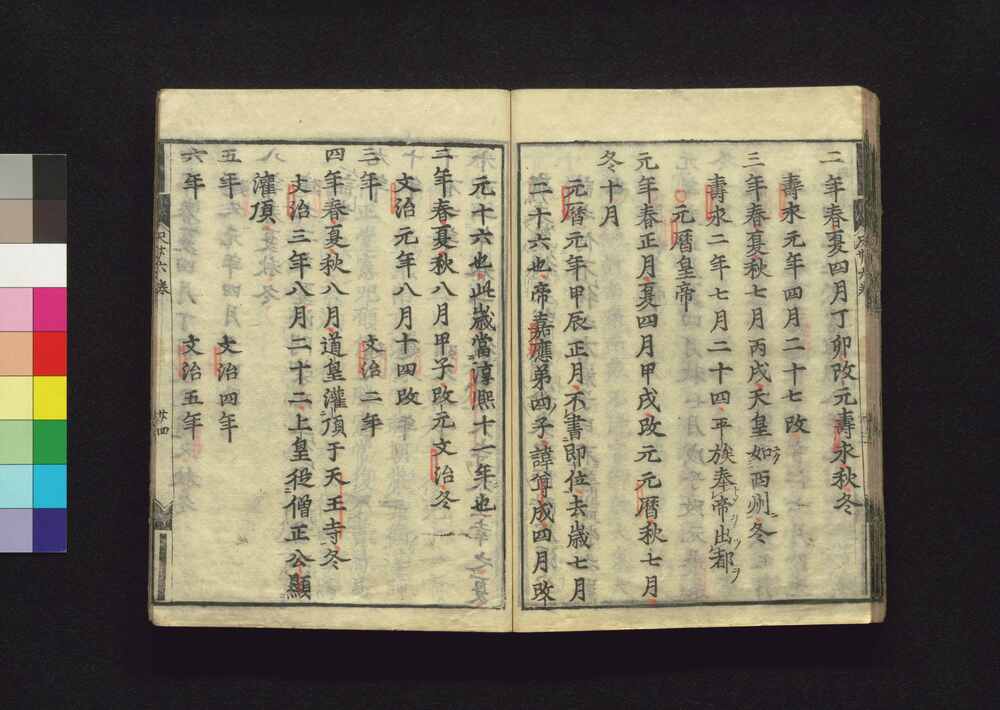 二年春夏四月丁卯改元壽永秋冬
壽永元年四月二十七改
三年春夏秋七月丙戌天皇如西州冬
壽永二年七月二十四平族奉帝出都
元暦皇帝
元年春正月夏四月甲戌改元元暦秋七月
冬十月
元暦元年甲辰正月不書即位去歳七月
二十六也帝嘉應第四子諱尊成四月改
元十六也此歳當淳熈十一年也
二年春夏秋八月甲子改元文治冬
文治元年八月十四改
三年 文治二年
四年春夏秋八月道皇灌頂于天王寺冬
文治三年八月二十二上皇從僧正公顯
灌頂
五年 文治四年
六年 文治五年
尺廿六卷
廿四